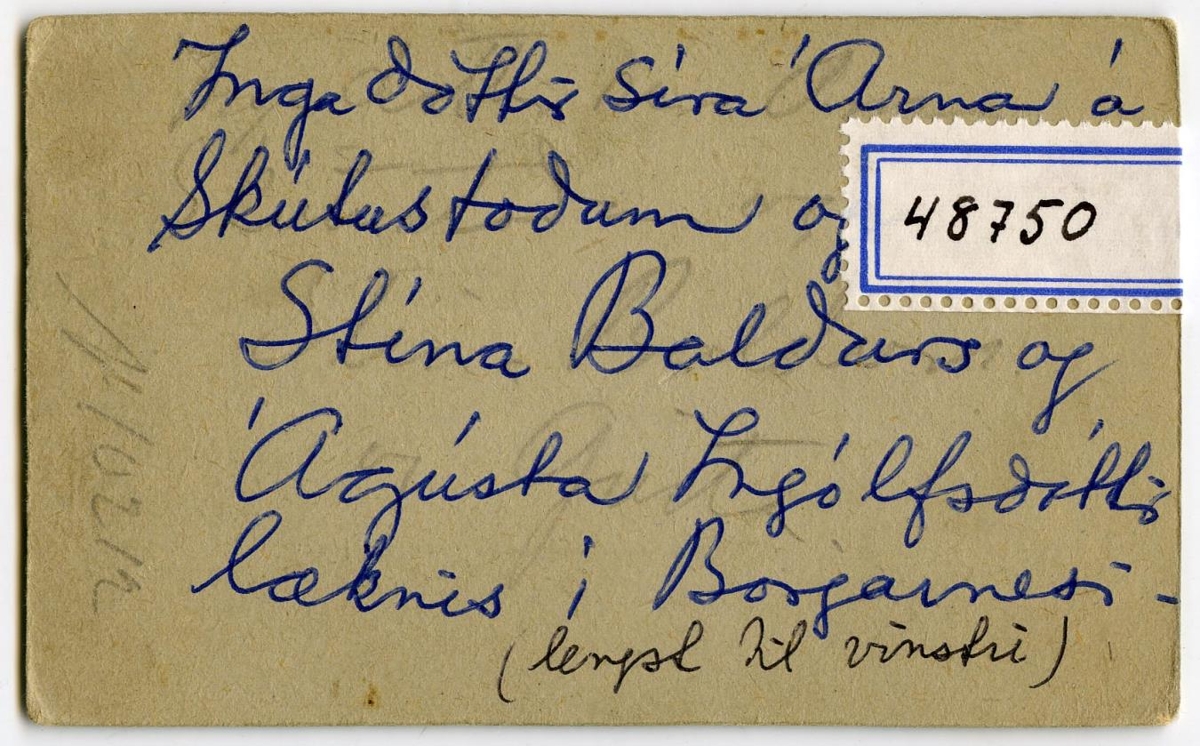 Inga dóttir síra Árna á
Skútustoðum og
48750
Stína Baldurs og
Ágústa Ingólfsdóttir
læknis í Borgarnesi -
(lengst til vinstri)